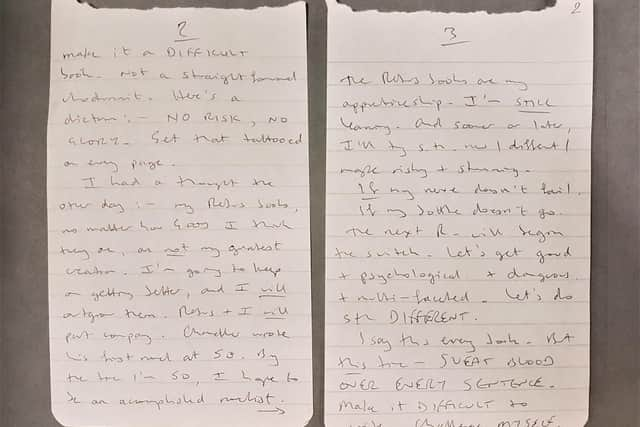 2
make it a DIFFICULT
book. Not a straightforward
whodunnit. Here's a
dictum :- NO RISK, NO
GLORY. Get that tattooed
on every page.
I had a thought the
other day :- my Rebus books,
no matter how GOOD I think
they are, are not my greatest
creation. I'm going to keep
on getting better, and I will
outgrow them. Rebus + I will
part company. Chandler wrote
his first novel at 50. By
the time I'm 50, I hope to
be an accomplished novelist.
2
3
The Rebus books are my
apprenticeship. I'm STILL
learning. And sooner or later,
I'll try s.th. new / different /
maybe risky + stunning.
If my nerve doesn't fail.
If my bottle doesn't go.
The next R. will begin
the switch. Let's get good
+ psychological + dangerous
+ multi-faceted. Let's do
sth DIFFERENT.
I say this every book. But
this time — SWEAT BLOOD
OVER EVERY SENTENCE.
Make it DIFFICULT to
Challenge MYSELF.